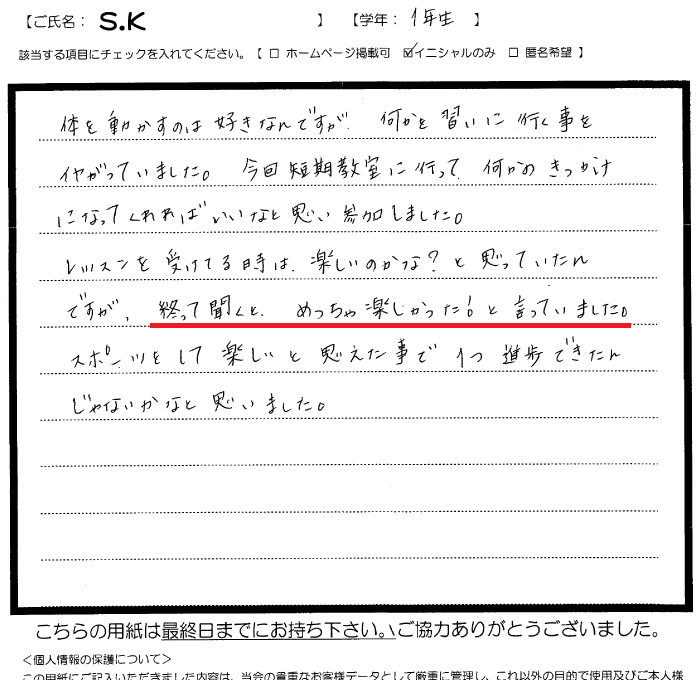 【ご氏名： S.K 】 【学年： 1年生 】
該当する項目にチェックを入れてください。【 □ ホームページ掲載可 ☑イニシャルのみ □ 匿名希望 】
体を動かすのは好きなんですが、何かを習いに行く事を
イヤがっていました。今回短期教室に行って、何かのきっかけ
になってくれればいいなと思い参加しました。
レッスンを受けてる時は、楽しいのかな？と思っていたん
ですが、終って聞くと、めっちゃ楽しかった！と言っていました。
スポーツをして楽しいと思えた事で1つ進歩できたん
じゃないかなと思いました。
こちらの用紙は最終日までにお持ち下さい。ご協力ありがとうございました。
＜個人情報の保護について＞
この用紙にご記入いただきました内容は、当会の貴重なお客様データとして厳重に管理し、これ以外の目的で使用及びご本人様